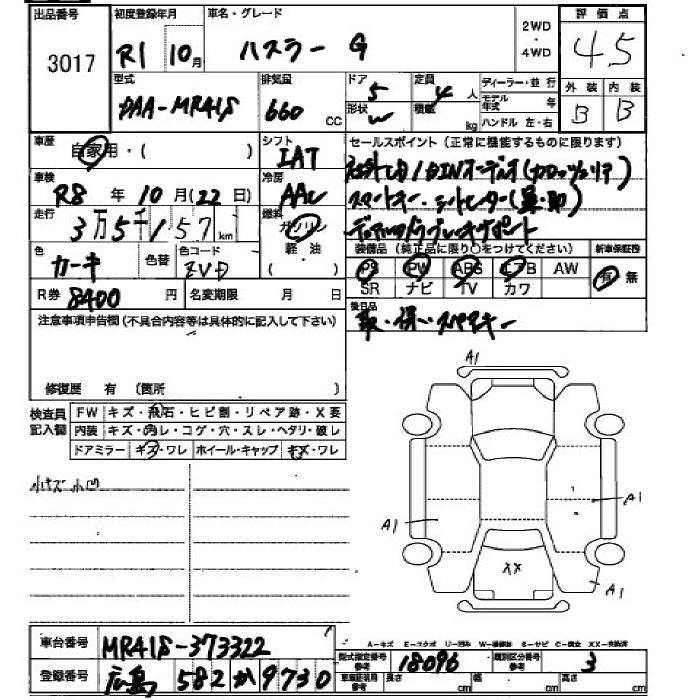 出品番号
3017
初度登録年月
R1 10月
車名・グレード
ハスラー G
2WD
・
4WD
評価点
4.5
型式
DAA-MR41S
排気量
660 CC
ドア
5
形状
W
定員
4人
積載
kg
ディーラー・並行
モデル年式 年
ハンドル 左・右
外装 内装
B B
車歴
自家用・( )
シフト
IAT
車検
R8 年 10月(22日)
冷房
AAC
走行
3万5千157km
燃料
ガソリン
軽油
( )
色
カーキ
色替
色コード
ZVD
R券 8400 円
名変期限 月 日
セールスポイント(正常に機能するものに限ります)
スマートキー・シートヒーター
装備品(純正品に限り○をつけてください)
PS PW ABS エアB AW
SR ナビ TV カワ
新車保証書
有 無
後日品
取・保・スペアキー
注意事項申告欄(不具合内容等は具体的に記入して下さい)
修復歴 有 (箇所 )
検査員記入欄
FW キズ・飛石・ヒビ割・リペア跡・X要
内装 キズ・汚レ・コゲ・穴・スレ・ヘタリ・破レ
ドアミラー キズ・ワレ ホイール・キャップ キズ・ワレ
小キズ 小凹
A1
A1
A1
XX
A1
車台番号 MR41S-373322
登録番号 広島 582 か 9730
A-キズ E-エクボ U-凹み W-補修跡 S-サビ C-腐食 XX-交換済
型式指定番号 参考 18096
類別区分番号 参考 3
車庫証明用 参考 長さ cm 幅 cm 高さ cm